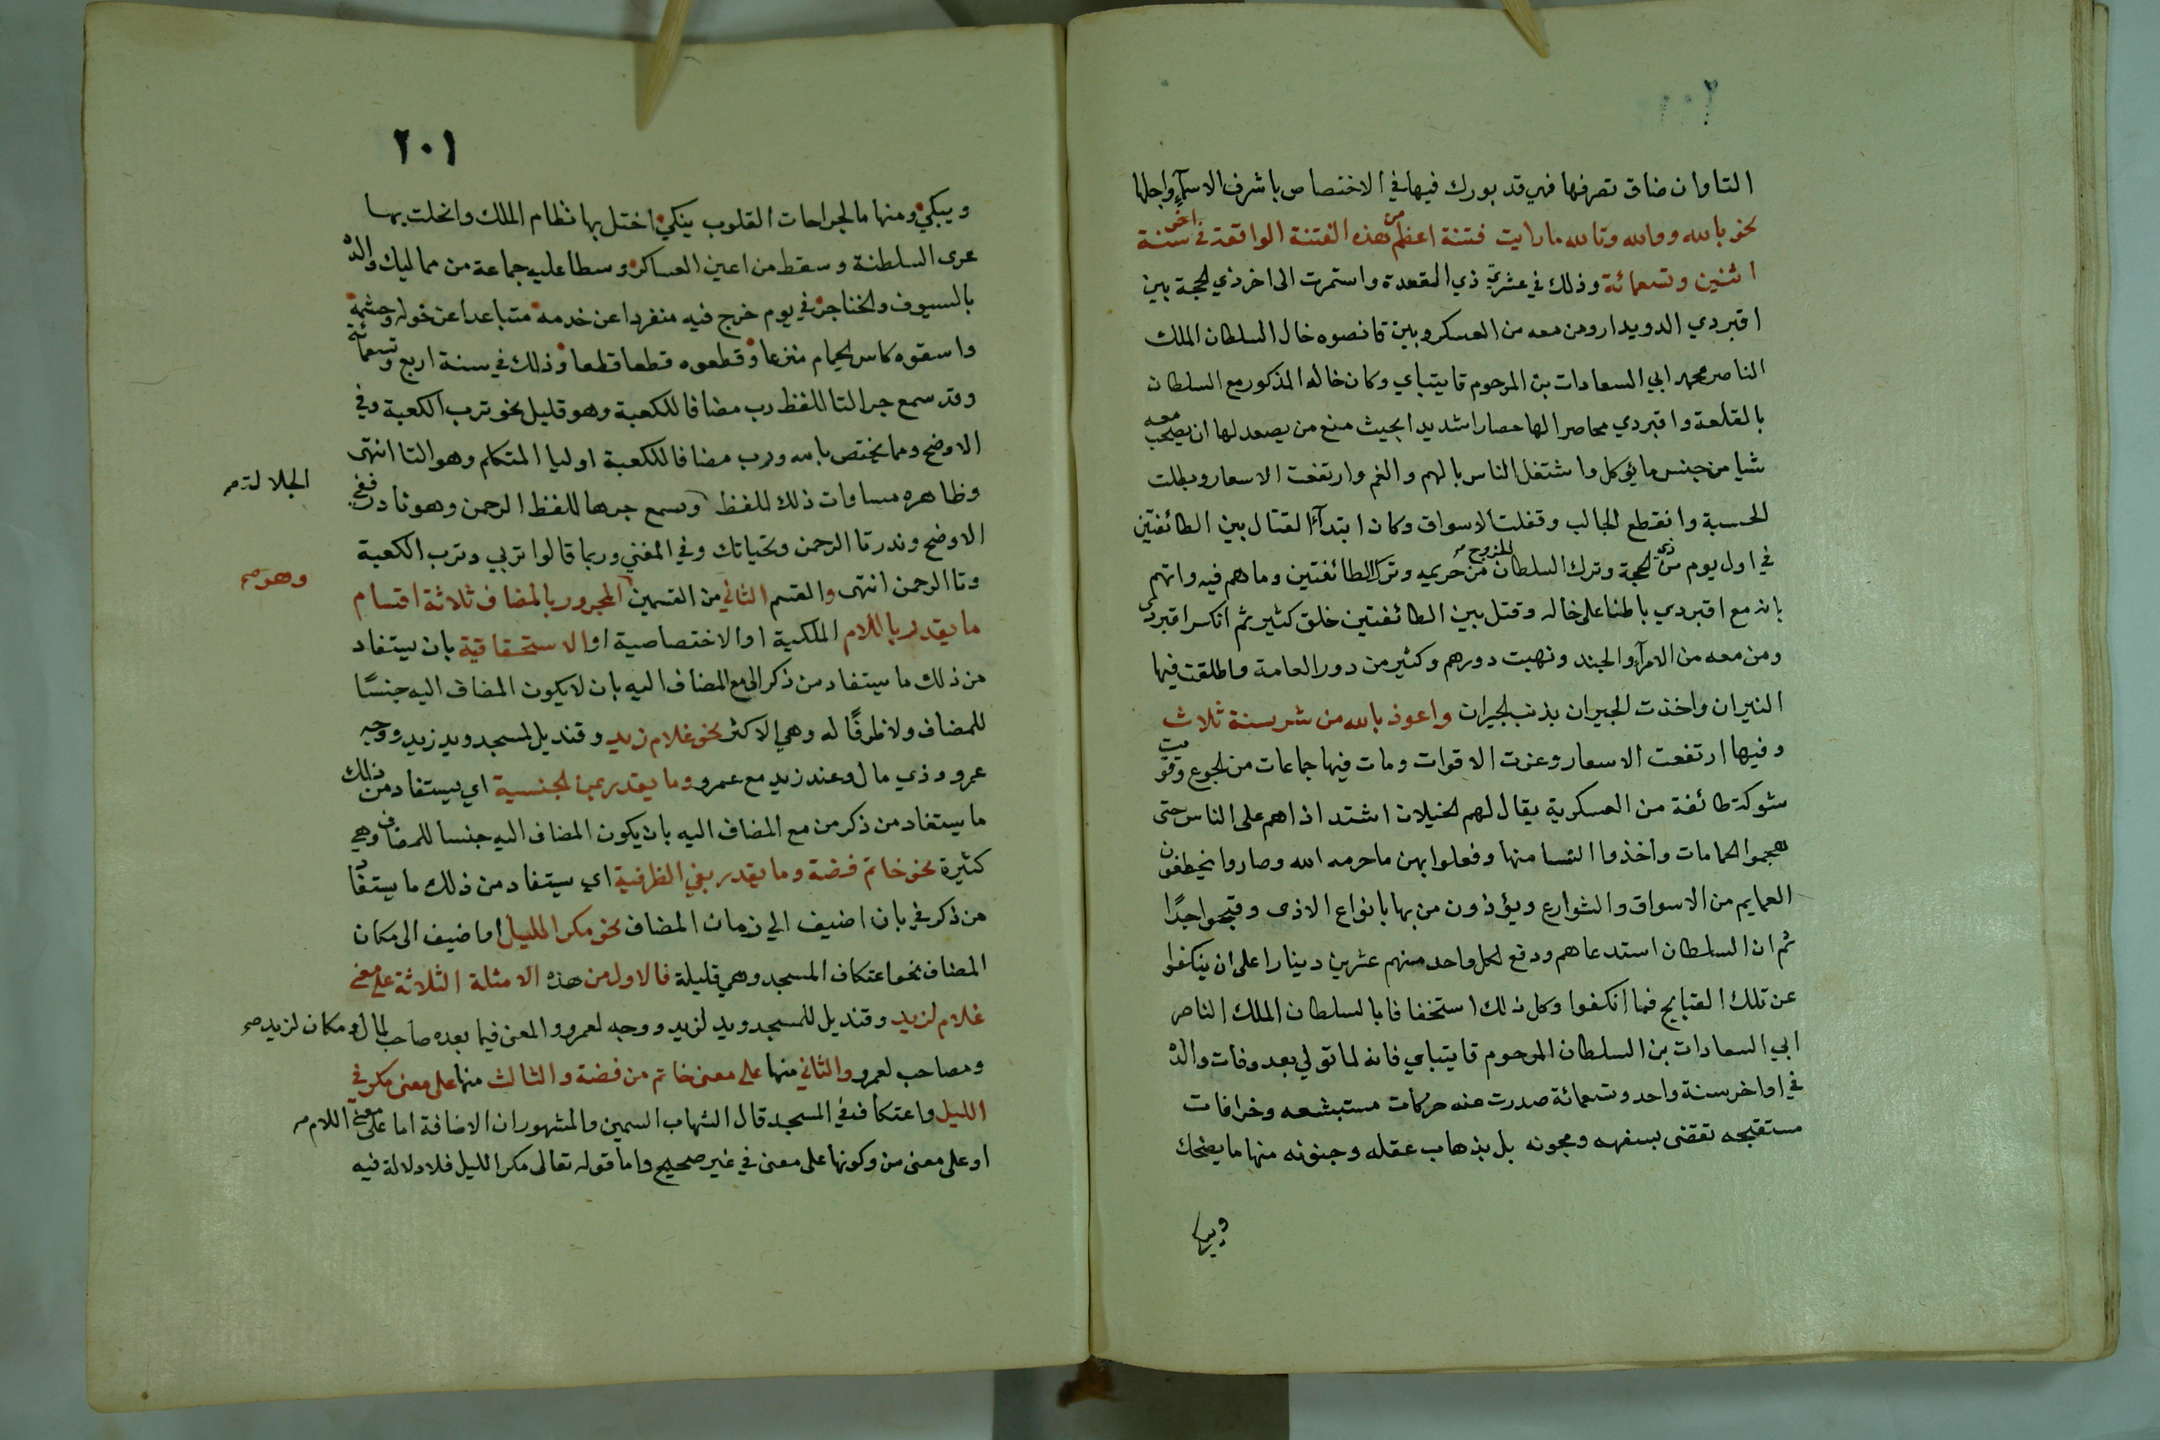 التا وان ضاق تصرفها فهي قد بورك فيها في الاختصاص باشرف الاسماء واجلها
نحو بالله ووالله وتالله ما رايت فتنة اعظم من هذه الفتنة الواقعة في اخر سنة
اثنين وتسعمائة وذلك في عشري ذي القعدة واستمرت الى اخر ذي الحجة بين
اقبردي الدويدار ومن معه من العسكر وبين قانصوه خال السلطان الملك
الناصر محمد ابي السعادات بن المرحوم قايتباي وكان خاله المذكور مع السلطان
بالقلعة واقبردي محاصرا لها حصارا شديدا بحيث منع من يصعد لها ان يصحب معه
شيا من جنس ما يؤكل واشتغل الناس بالهم والغم وارتفعت الاسعار وبطلت
الحسبة وانقطع الجالب وقفلت الاسواق وكان ابتداء القتال بين الطائفتين
في اول يوم من ذي الحجة وترك السلطان الخروج من حريمه وترك الطائفتين وما هم فيه واتهم
بانه مع اقبردي باطنا على خاله وقتل بين الطائفتين خلق كثير ثم انكسر اقبردي
ومن معه من الامرآء والجند ونهبت دورهم وكثير من دور العامة واطلقت فيها
النيران واخذت الجيران بذنب الجيران واعوذ بالله من شر سنة ثلاث
وفيها ارتفعت الاسعار وعزت الاقوات ومات فيها جماعات من الجوع وقويت
شوكة طائفة من العسكرية يقال لهم الخيلان اشتد اذاهم على الناس حتى
هجموا الحمامات واخذوا النسا منها وفعلوا بهن ما حرمه الله وصاروا يخطفون
العمايم من الاسواق والشوارع ويؤذون من بها بانواع الاذى وقبحوا جدًا
ثم ان السلطان استدعاهم ودفع لكل واحد منهم عشرين دينارا على ان ينكفوا
عن تلك القبايح فما انكفوا وكل ذلك استخفافا بالسلطان الملك الناصر
ابي السعادات بن السلطان المرحوم قايتباي فانه لما تولي بعد وفات والده
في اواخر سنة واحد وتسعمائة صدرت منه حركات مستبشعه وخرافات
مستقبحه تقضى بسفهه ومجونه بل بذهاب عقله وجنونه منها ما يضحك
ويبكي
٢٠١
ويبكي ومنها ما لجراحات القلوب ينكي اختل بها نظام الملك وانحلت بها
عرى السلطنة وسقط من اعين العساكر وسطا عليه جماعة من مماليك والده
بالسيوف والخناجر في يوم خرج فيه منفردا عن خدمه متباعدا عن خوله وحشمه
واسقوه كاس الحمام منزعا وقطعوه قطعا قطعا وذلك في سنة اربع وتسعمائة
وقد سمع جر التا للفظ رب مضافا للكعبة وهو قليل نحو ترب الكعبة وفي
الاوضح ومما يختص بالله ورب مضافا للكعبة او ليا المتكلم وهو التا انتهى
وظاهره مساوات ذلك للفظ الجلالة وسمع جرها للفظ الرحمن وهو نادر ففي
الاوضح وندر تا الرحمن وتحياتك وفي المغني وربما قالوا تربي وترب الكعبة
وتا الرحمن انتهى والقسم الثاني من القسمين وهو المجرور بالمضاف ثلاثة اقسام
ما يقدر باللام الملكية او الاختصاصية او الاستحقاقية بان يستفاد
من ذلك ما يستفاد من ذكر الى مع المضاف اليه بان لا يكون المضاف اليه جنسًا
للمضاف ولا ظرفًا له وهي الاكثر نحو غلام زيد وقنديل المسجد ويد زيد ووجه
عمرو وذي مال وعند زيد مع عمرو وما يقدر بمن الجنسية اي يستفاد من ذلك
ما يستفاد من ذكر من مع المضاف اليه بان يكون المضاف اليه جنسا للمضاف وهي
كثيرة نحو خاتم فضة وما يقدر بفي الظرفية اي يستفاد من ذلك ما يستفاد
من ذكر في بان اضيف الي زمان المضاف نحو مكر الليل او اضيف الى مكان
المضاف نحو اعتكاف المسجد وهي قليلة فالاول من هذه الامثلة الثلاثة على معنى
غلام لزيد وقنديل للمسجد ويد لزيد ووجه لعمرو والمعنى فيما بعده صاحب لمال ومكان لزيد صح
ومصاحب لعمرو والثاني منها على معنى خاتم من فضة والثالث منها على معنى مكر في
الليل واعتكاف في المسجد قال الشهاب السمين والمشهور ان الاضافة اما على معنى اللام
او على معنى من وكونها على معنى في غير صحيح واما قوله تعالى مكر الليل فلا دلالة فيه